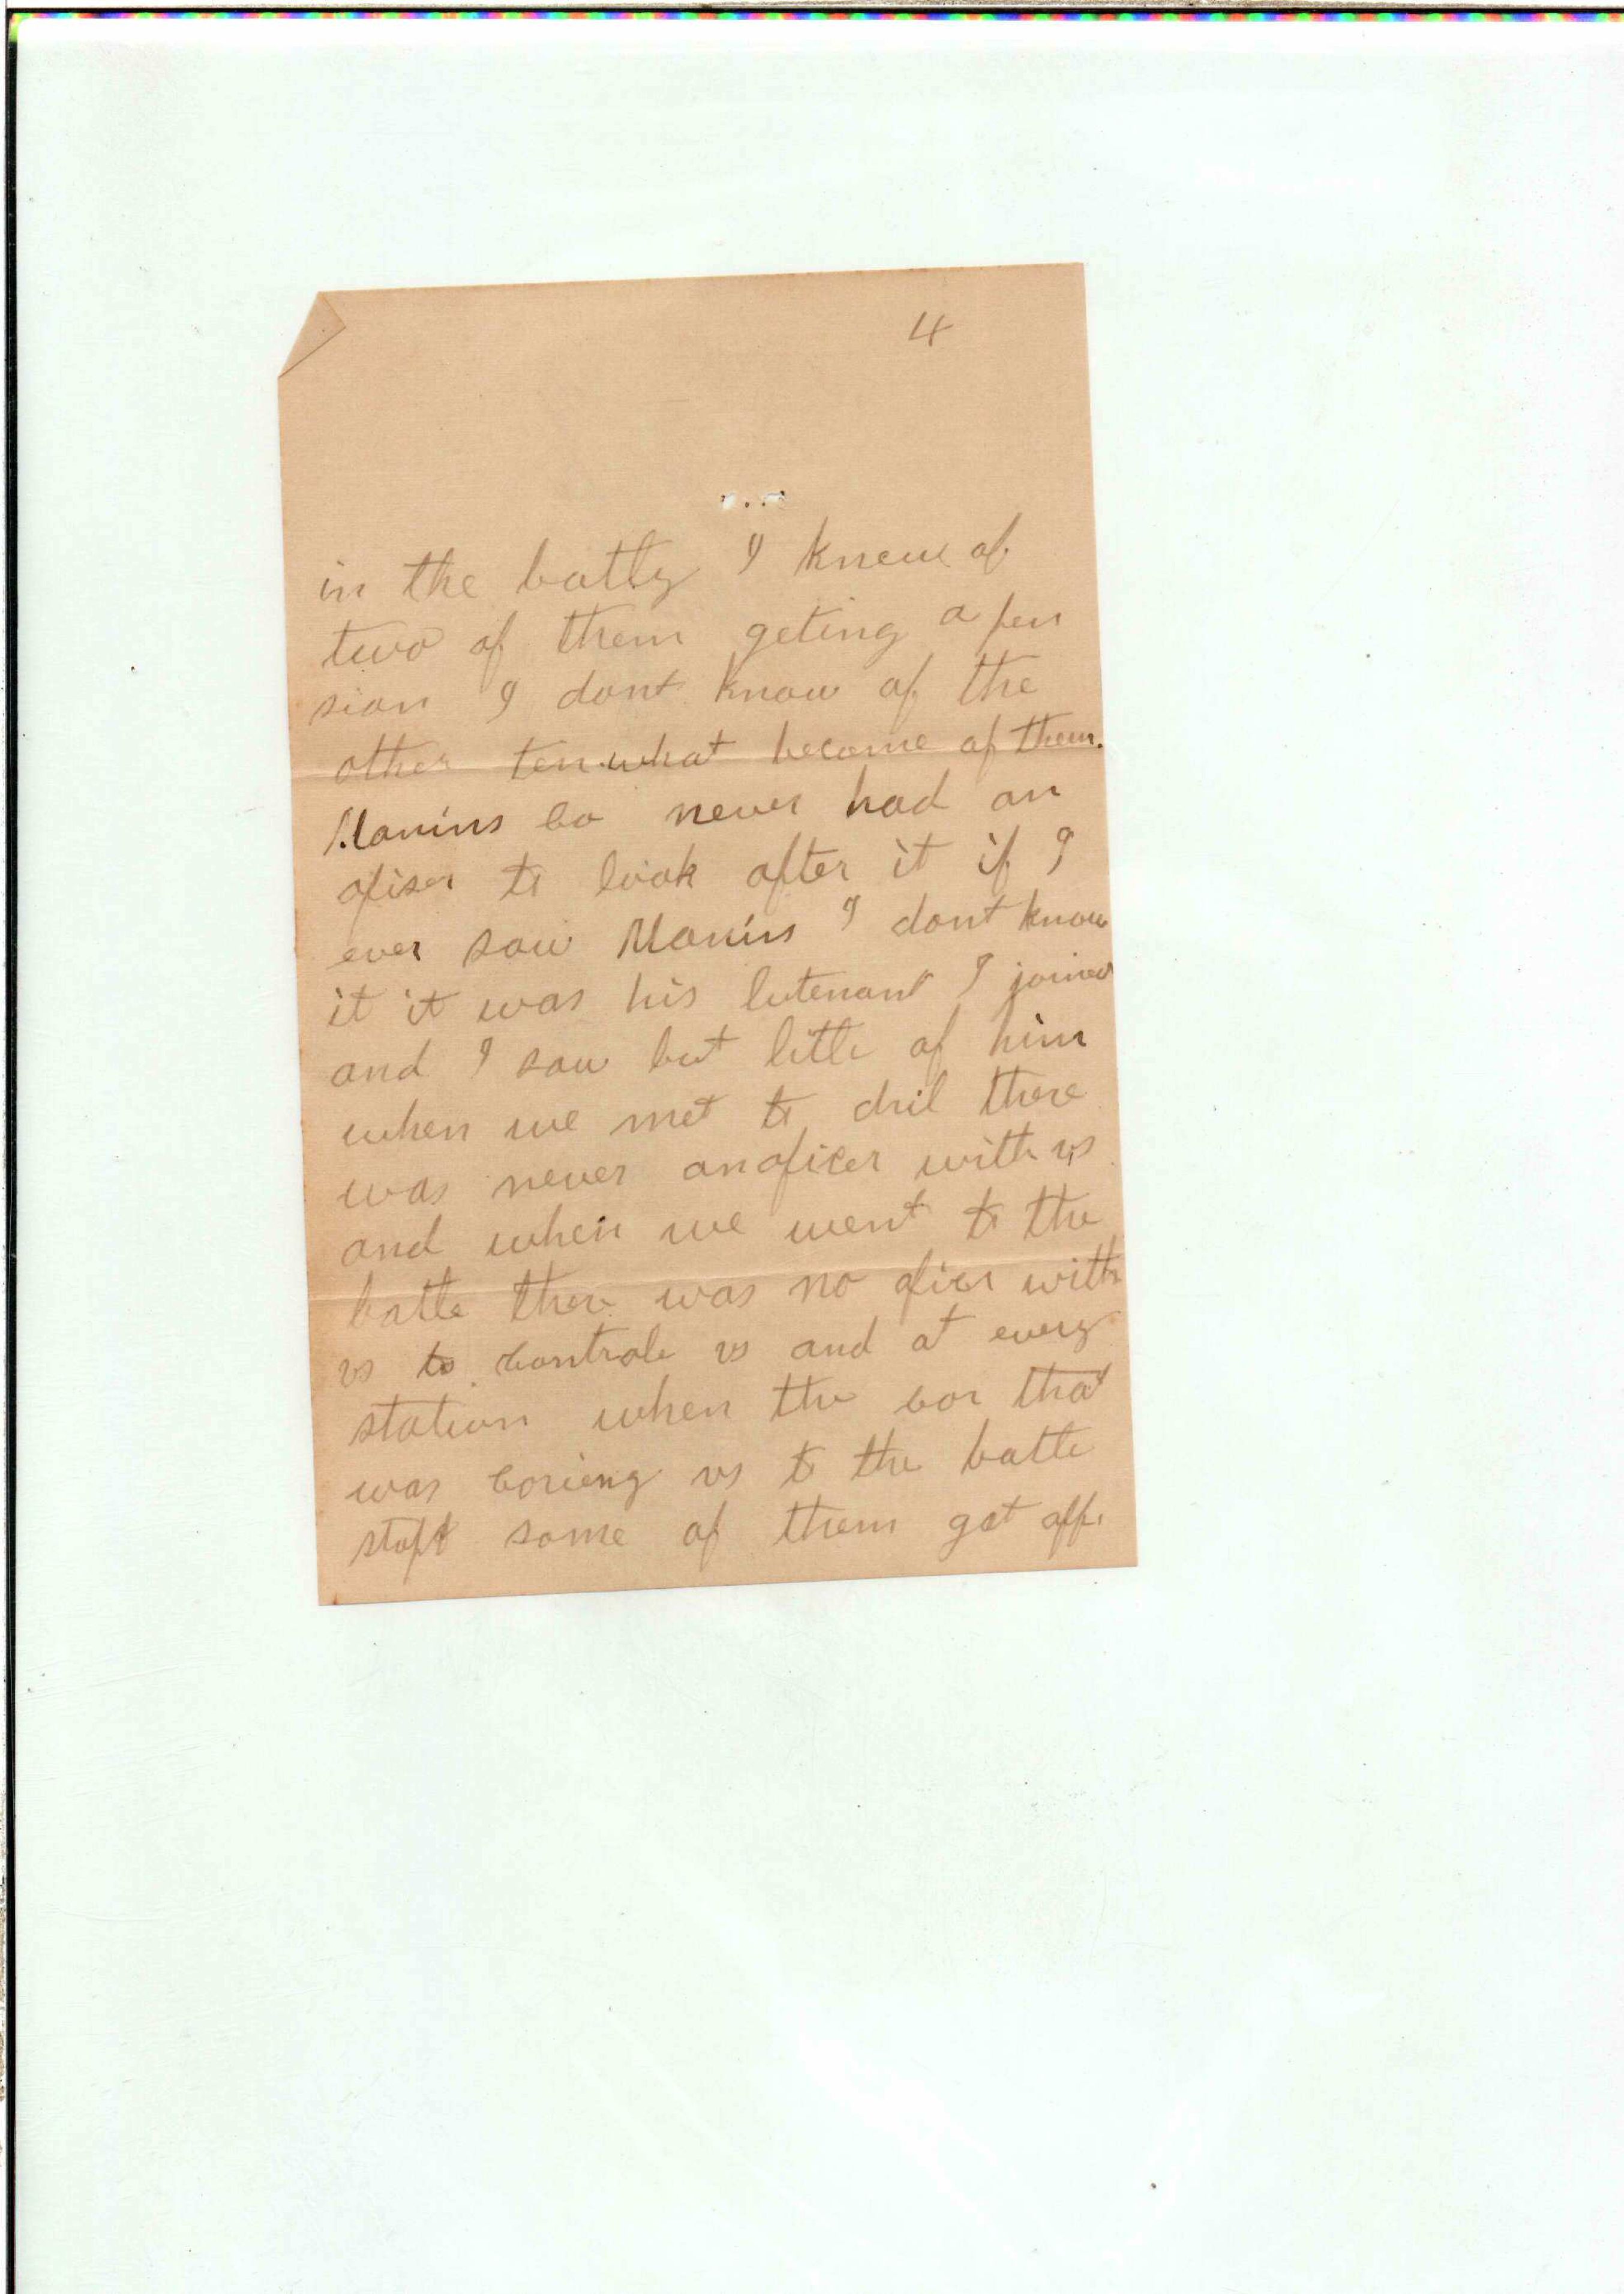 4
in the batly I knew of
two of them geting a pen
sion I dont know of the
other ten what become of them.
Manins Co never had an
ofiser to look after it if I
ever saw Manins I dont know
it it was his lutenant I joined
and I saw but litle of him
when we met to dril there
was never an oficer with us
and when we went to the
batle there was no oficer with
us to controle us and at every
station when the car that
was carieng us to the batle
stopt some of them got off.